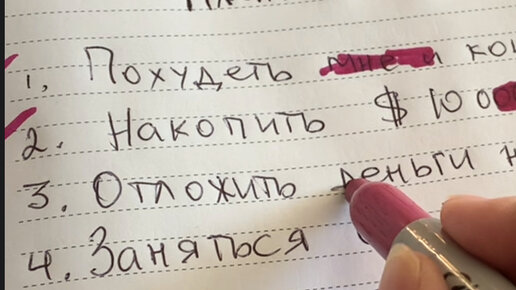 1. Похудеть мне и
2. Накопить $ 1000
3. Отложить деньги
4. Заняться